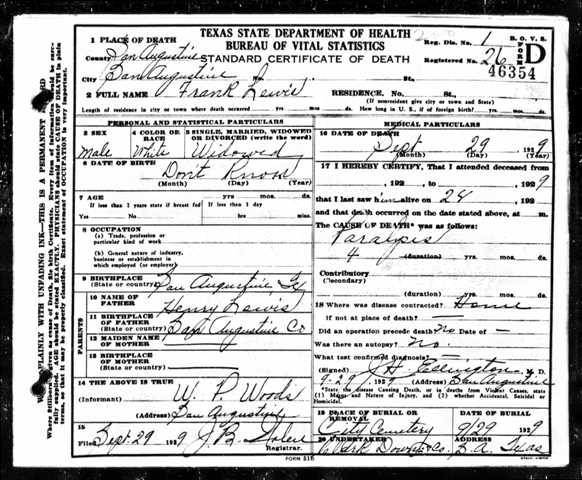 TEXAS STATE DEPARTMENT OF HEALTH
BUREAU OF VITAL STATISTICS
STANDARD CERTIFICATE OF DEATH
Reg. Dis. No. 1
Registered No. 26
B. O. V. S.
FORM D
46354
1 PLACE OF DEATH
County San Augustine
City San Augustine St.
2 FULL NAME Frank Lewis RESIDENCE. No. St.
(If nonresident give city or town and State)
Length of residence in city or town where death occurred yrs. mos. ds. How long in U. S., if of foreign birth? yrs. mos. ds.
PERSONAL AND STATISTICAL PARTICULARS
3 SEX
Male
4 COLOR OR RACE
White
5 SINGLE, MARRIED, WIDOWED OR DIVORCED (write the word)
Widowed
6 DATE OF BIRTH
Dont Know
(Month) (Day) (Year)
7 AGE yrs. mos. ds.
If less than 2 years state if breast fed If less than 1 day
Yes No hrs. min.
8 OCCUPATION
(a) Trade, profession or particular kind of work
(b) General nature of industry, business or establishment in which employed (or employer)
9 BIRTHPLACE
(State or country) San Augustine, Tx
PARENTS
10 NAME OF FATHER Henry Lewis
11 BIRTHPLACE OF FATHER
(State or country) San Augustine Co
12 MAIDEN NAME OF MOTHER
13 BIRTHPLACE OF MOTHER
(State or country)
14 THE ABOVE IS TRUE
(Informant) W. P. Woods
(Address) San Augustine
15
Filed Sept. 29 1929 J. B.
Registrar.
MEDICAL PARTICULARS
16 DATE OF DEATH
Sept 29 1929
(Month) (Day) (Year)
17 I HEREBY CERTIFY, That I attended deceased from
, 192 , to , 1929
that I last saw him alive on 24 , 192
and that death occurred on the date stated above, at m.
The CAUSE OF DEATH* was as follows:
Paralysis
4 (duration) yrs. mos. ds.
Contributory
(Secondary)
(duration) yrs. mos. ds.
18 Where was disease contracted? Home
if not at place of death?
Did an operation precede death? No Date of -
Was there an autopsy? No.
What test confirmed diagnosis?
(Signed) J. H. Ellington M. D.
9-29, 1929 (Address) San Augustine
*State the Disease Causing Death, or in deaths from Violent Causes, state (1) Means and Nature of Injury, and (2) whether Accidental, Suicidal or Homicidal.
19 PLACE OF BURIAL OR REMOVAL
City Cemetery
DATE OF BURIAL
9/29 1929
20 UNDERTAKER
ADDRESS
S. A. Texas